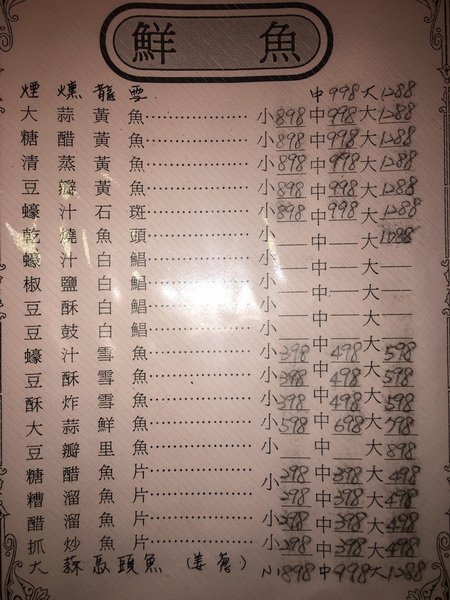 鮮魚
煙燻龍雪 中998大1288
大蒜黃魚 小898中998大1288
糖醋黃魚 小898中998大1288
清蒸黃魚 小898中998大1288
豆瓣黃魚 小898中998大1288
蠔汁石斑 小898中998大1288
乾燒魚頭 小 中 大1088
蠔汁白鯧 小 中 大
椒鹽白鯧 小 中 大
豆酥白鯧 小 中 大
豆鼓白鯧 小 中 大
蠔汁雪魚 小398中498大598
豆酥雪魚 小398中498大598
酥炸雪魚 小398中498大598
大蒜鮮魚 小598中698大798
豆瓣里魚 小 中 大898
糖醋魚片 小298中398大498
糟溜魚片 小298中398大498
醋溜魚片 小298中398大498
抓炒魚片 小298中398大498
大蒜馬頭魚(姜蔥) 小898中998大1288